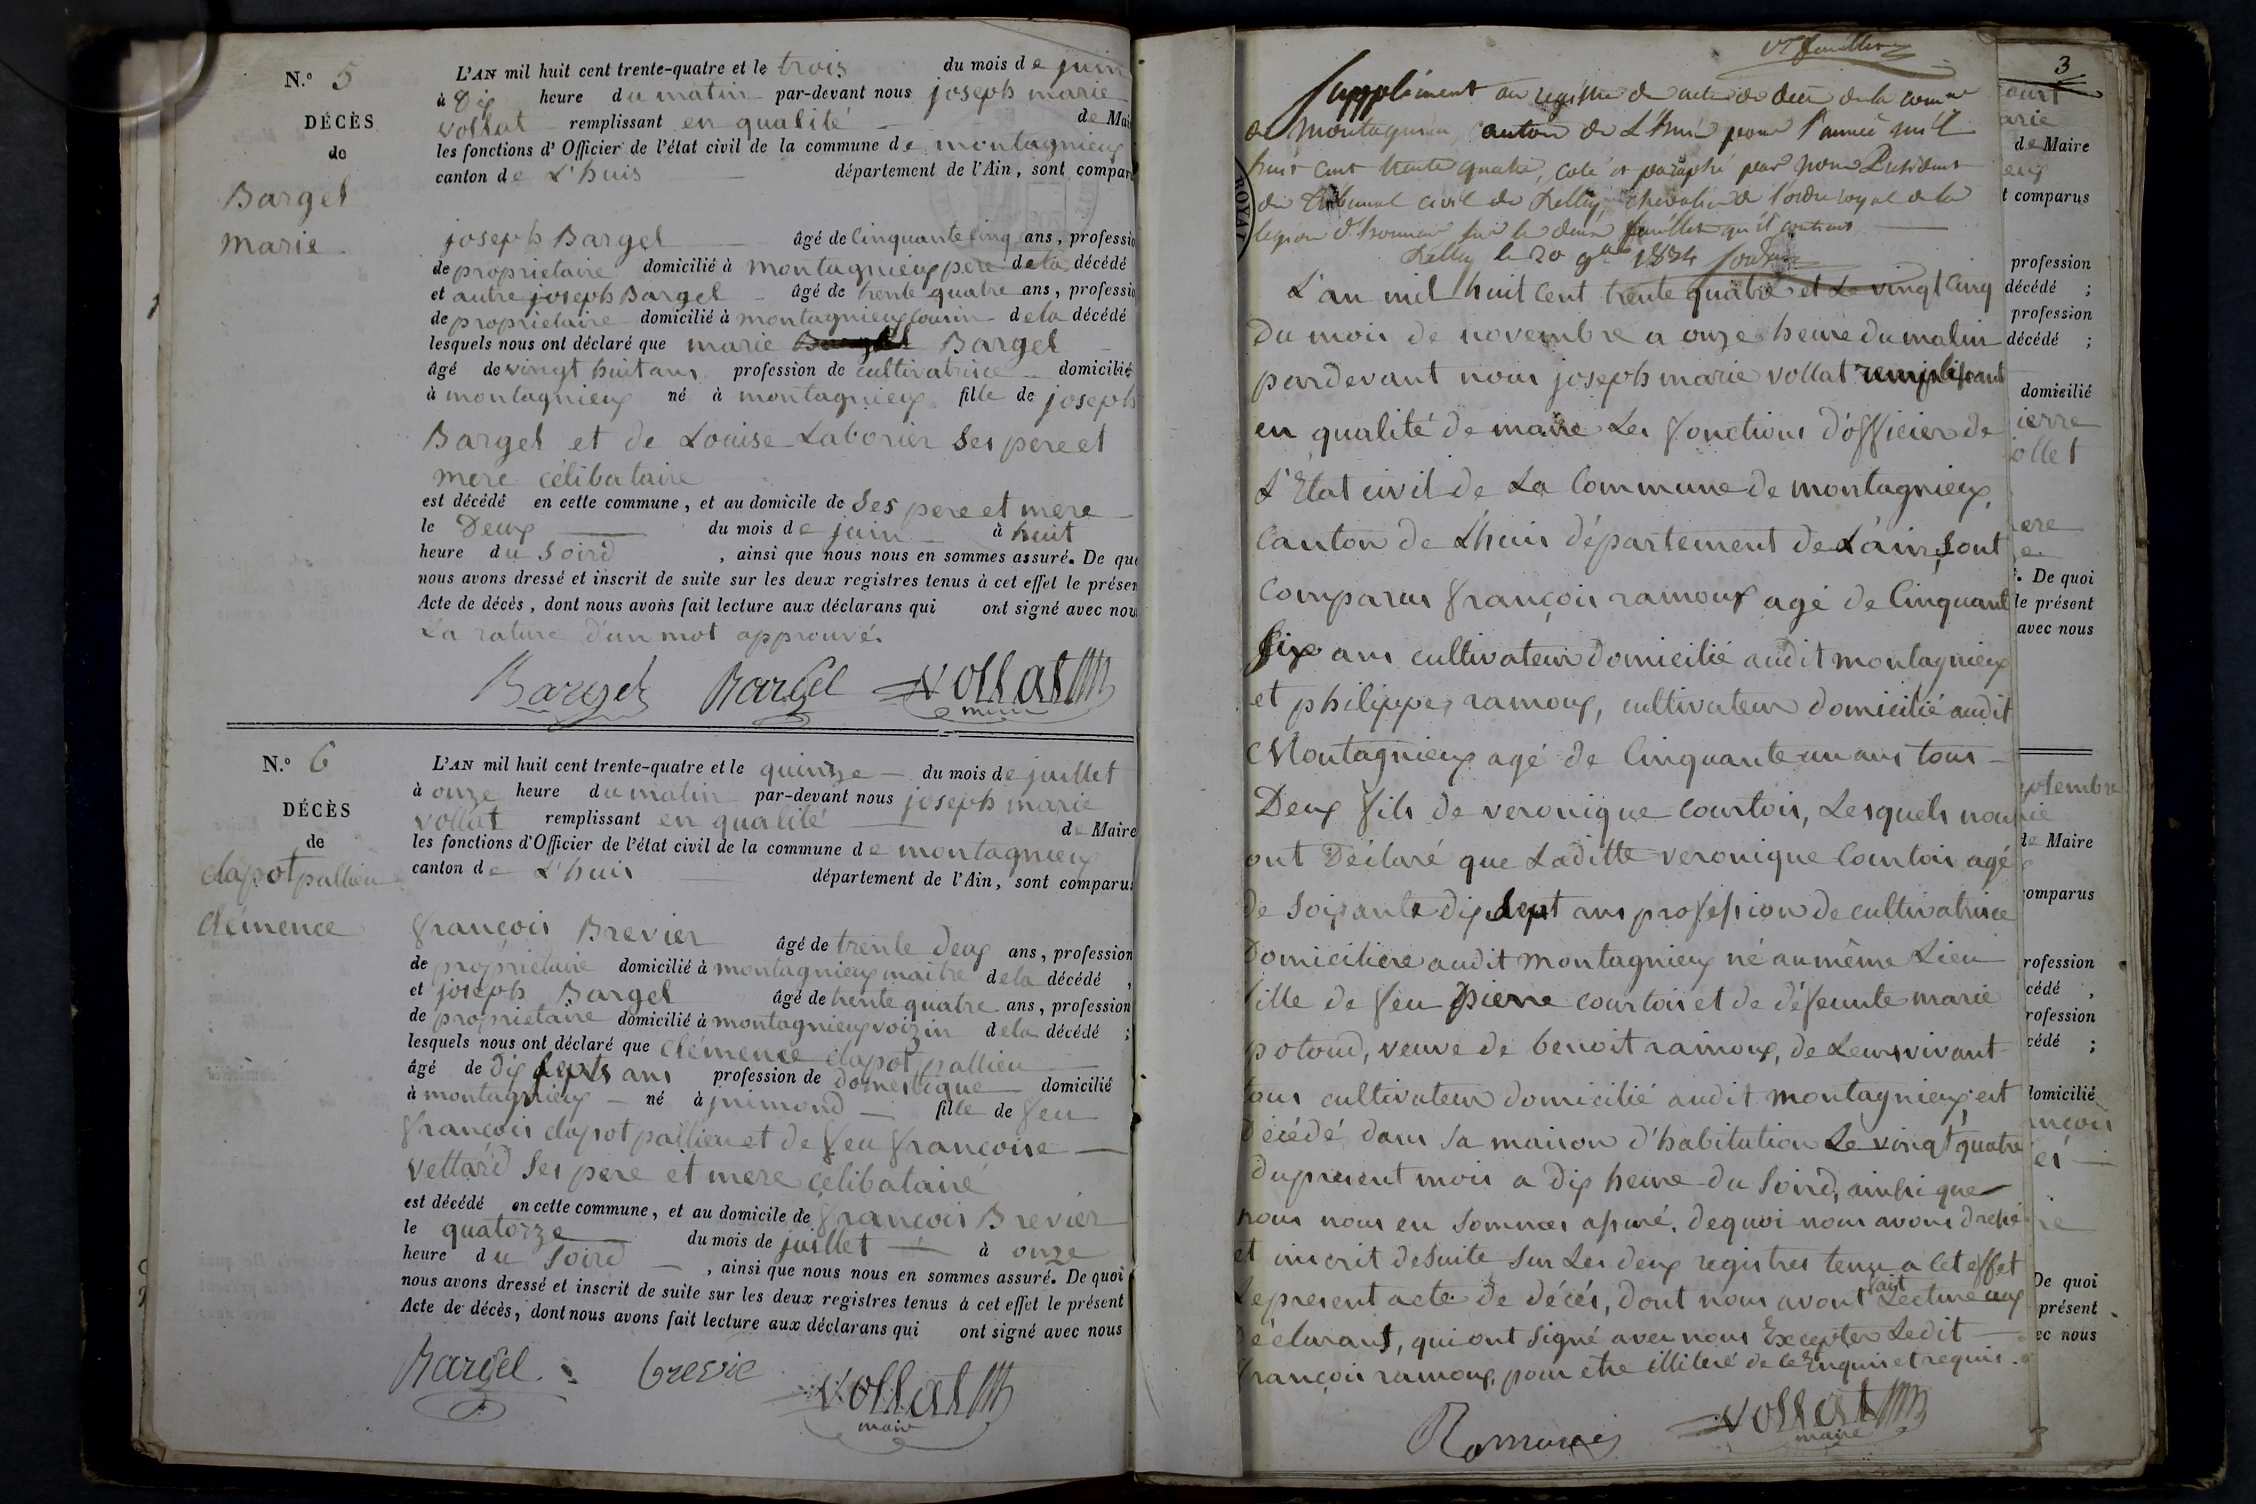 N.o 5
DÉCÈS
de
Bargel
marie
L'AN mil huit cent trente-quatre et le trois du mois de juin
à Dix heure du matin par-devant nous joseph marie
vollat remplissant en qualité de Mai
les fonctions d'Officier de l'état civil de la commune de montagnieux
canton de L'huis département de l'Ain, sont compar
joseph Bargel âgé de Cinquante Cinq ans, professio
de proprietaire domicilié à montagnieux pere de la décédé
et autre joseph Bargel âgé de trente quatre ans, professio
de proprietaire domicilié à montagnieux Cousin de la décédé
lesquels nous ont déclaré que marie Bargel
âgé de vingt huit ans profession de cultivatrice domicilié
à montagnieux né à montagnieux fille de joseph
Bargel et de Louise Laborier Ses pere et
mere célibataire
est décédé en cette commune, et au domicile de Ses pere et mere
le Deux du mois de juin à huit
heure du Soird, ainsi que nous nous en sommes assuré. De quo
nous avons dressé et inscrit de suite sur les deux registres tenus à cet effet le présen
Acte de décès, dont nous avons fait lecture aux déclarans qui ont signé avec nou
La rature d'un mot approuvé.
Bargel Bargel vollat
maire
N.o 6
DÉCÈS
de
clapot pallieu
clémence
L'AN mil huit cent trente-quatre et le quinze du mois de juillet
à onze heure du matin par-devant nous joseph marie
vollat remplissant en qualité de Maire
les fonctions d'Officier de l'état civil de la commune de montagnieux
canton de L'huis département de l'Ain, sont comparus
françois Brevier âgé de trente Deux ans, profession
de proprietaire domicilié à montagnieux maitre de la décédé,
et joseph Bargel âgé de trente quatre ans, profession
de proprietaire domicilié à montagnieux voizin de la décédé;
lesquels nous ont déclaré que clémence clapot pallieu
âgé de Dix Septs ans profession de domestique domicilié
à montagnieux né à fille de feu
françois clapot pallieu et de feu françoise
vettard Ses pere et mere celibataire
est décédé en cette commune, et au domicile de françois Brevier
le quatorze du mois de juillet à onze
heure du Soird, ainsi que nous nous en sommes assuré. De quoi
nous avons dressé et inscrit de suite sur les deux registres tenus à cet effet le présent
Acte de décès, dont nous avons fait lecture aux déclarans qui ont signé avec nous
Bargel brevie vollat
maire
Supplément au registre de actes de décès de la comne
de Montagnieu, canton de L'huis pour l'année mil
huit cent trente quatre, coté et paraphé par nous Président
du Tribunal civil de Belley, chevalier de l'ordre royal de la
légion d'honneur sur les deux feuillets qu'il contient
Belley le 20 9bre 1834
L'an mil huit cent trente quatre et Le vingt Cinq
Du mois de novembre a onze heure du matin
pardevant nous joseph marie vollat remplissant
en qualité de maire Les fonctions d'officier de
L'Etat civil de La Commune de montagnieux,
Canton de Lhuis département de L'ain, Sont
Comparus françois ramoux agé de Cinquant
Six ans cultivateur domicilié audit montagnieux
et philippe ramoux, cultivateur domicilié audit
Montagnieux agé de Cinquante un ans tous
Deux fils de veronique courtois, Lesquels nous
ont Déclaré que Laditte veronique Courtois agé
de Soixante dix Sept ans profession de cultivatrice
Domiciliere audit montagnieux né au même Lieu
fille de feu pierre courtois et de défeunte marie
potoud, veuve de benoit ramoux, de Leurs vivant
tous cultivateur domicilié audit montagnieux, est
Décédé dans Sa maison d'habitation Le vingt quatre
Du present mois a Dix heure du Soird, ainssi que
nous nous en Sommes assuré. de quoi nous avons dressé
et inscrit de Suite Sur Les deux registres tenu a Cet effet
Le present acte de décés, dont nous avont fait Lecture aux
Déclarant, qui ont Signé avec nous Excepter Ledit
françois ramoux pour etre illiteré de ce Enquis et requis.
vollat
maire
3
de Maire
t comparus
profession
décédé ;
profession
décédé ;
domicilié
ierre
ollet
ere
. De quoi
le présent
avec nous
eptembre
de Maire
comparus
rofession
cédé ,
rofession
cédé ;
domicilié
ançois
De quoi
présent
ec nous
ROYAL